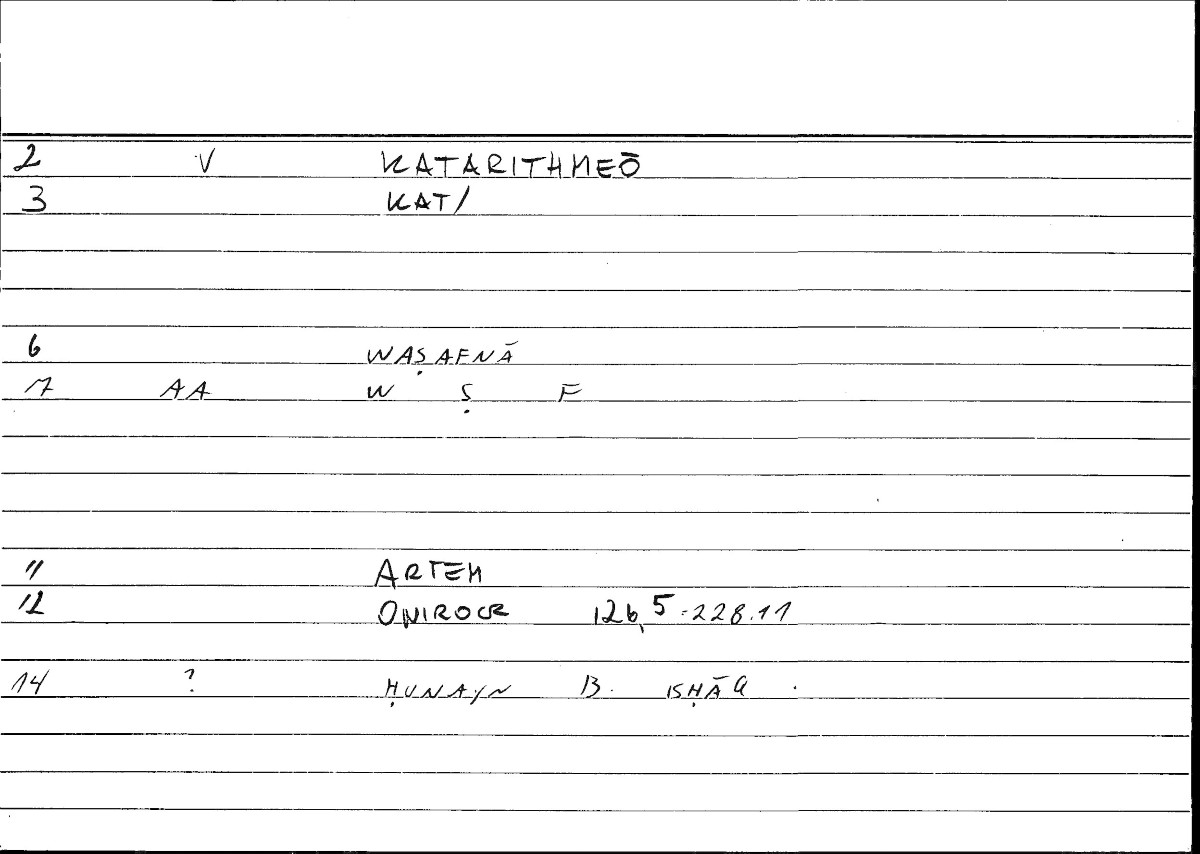 2 V KATARITHMEŌ
3 KAT/
6 WAṢAFNĀ
7 AA W Ṣ F
11 ARTEM
12 ONIROCR 126,5-228.11
14 ? ḤUNAYN B. ISḤĀQ.